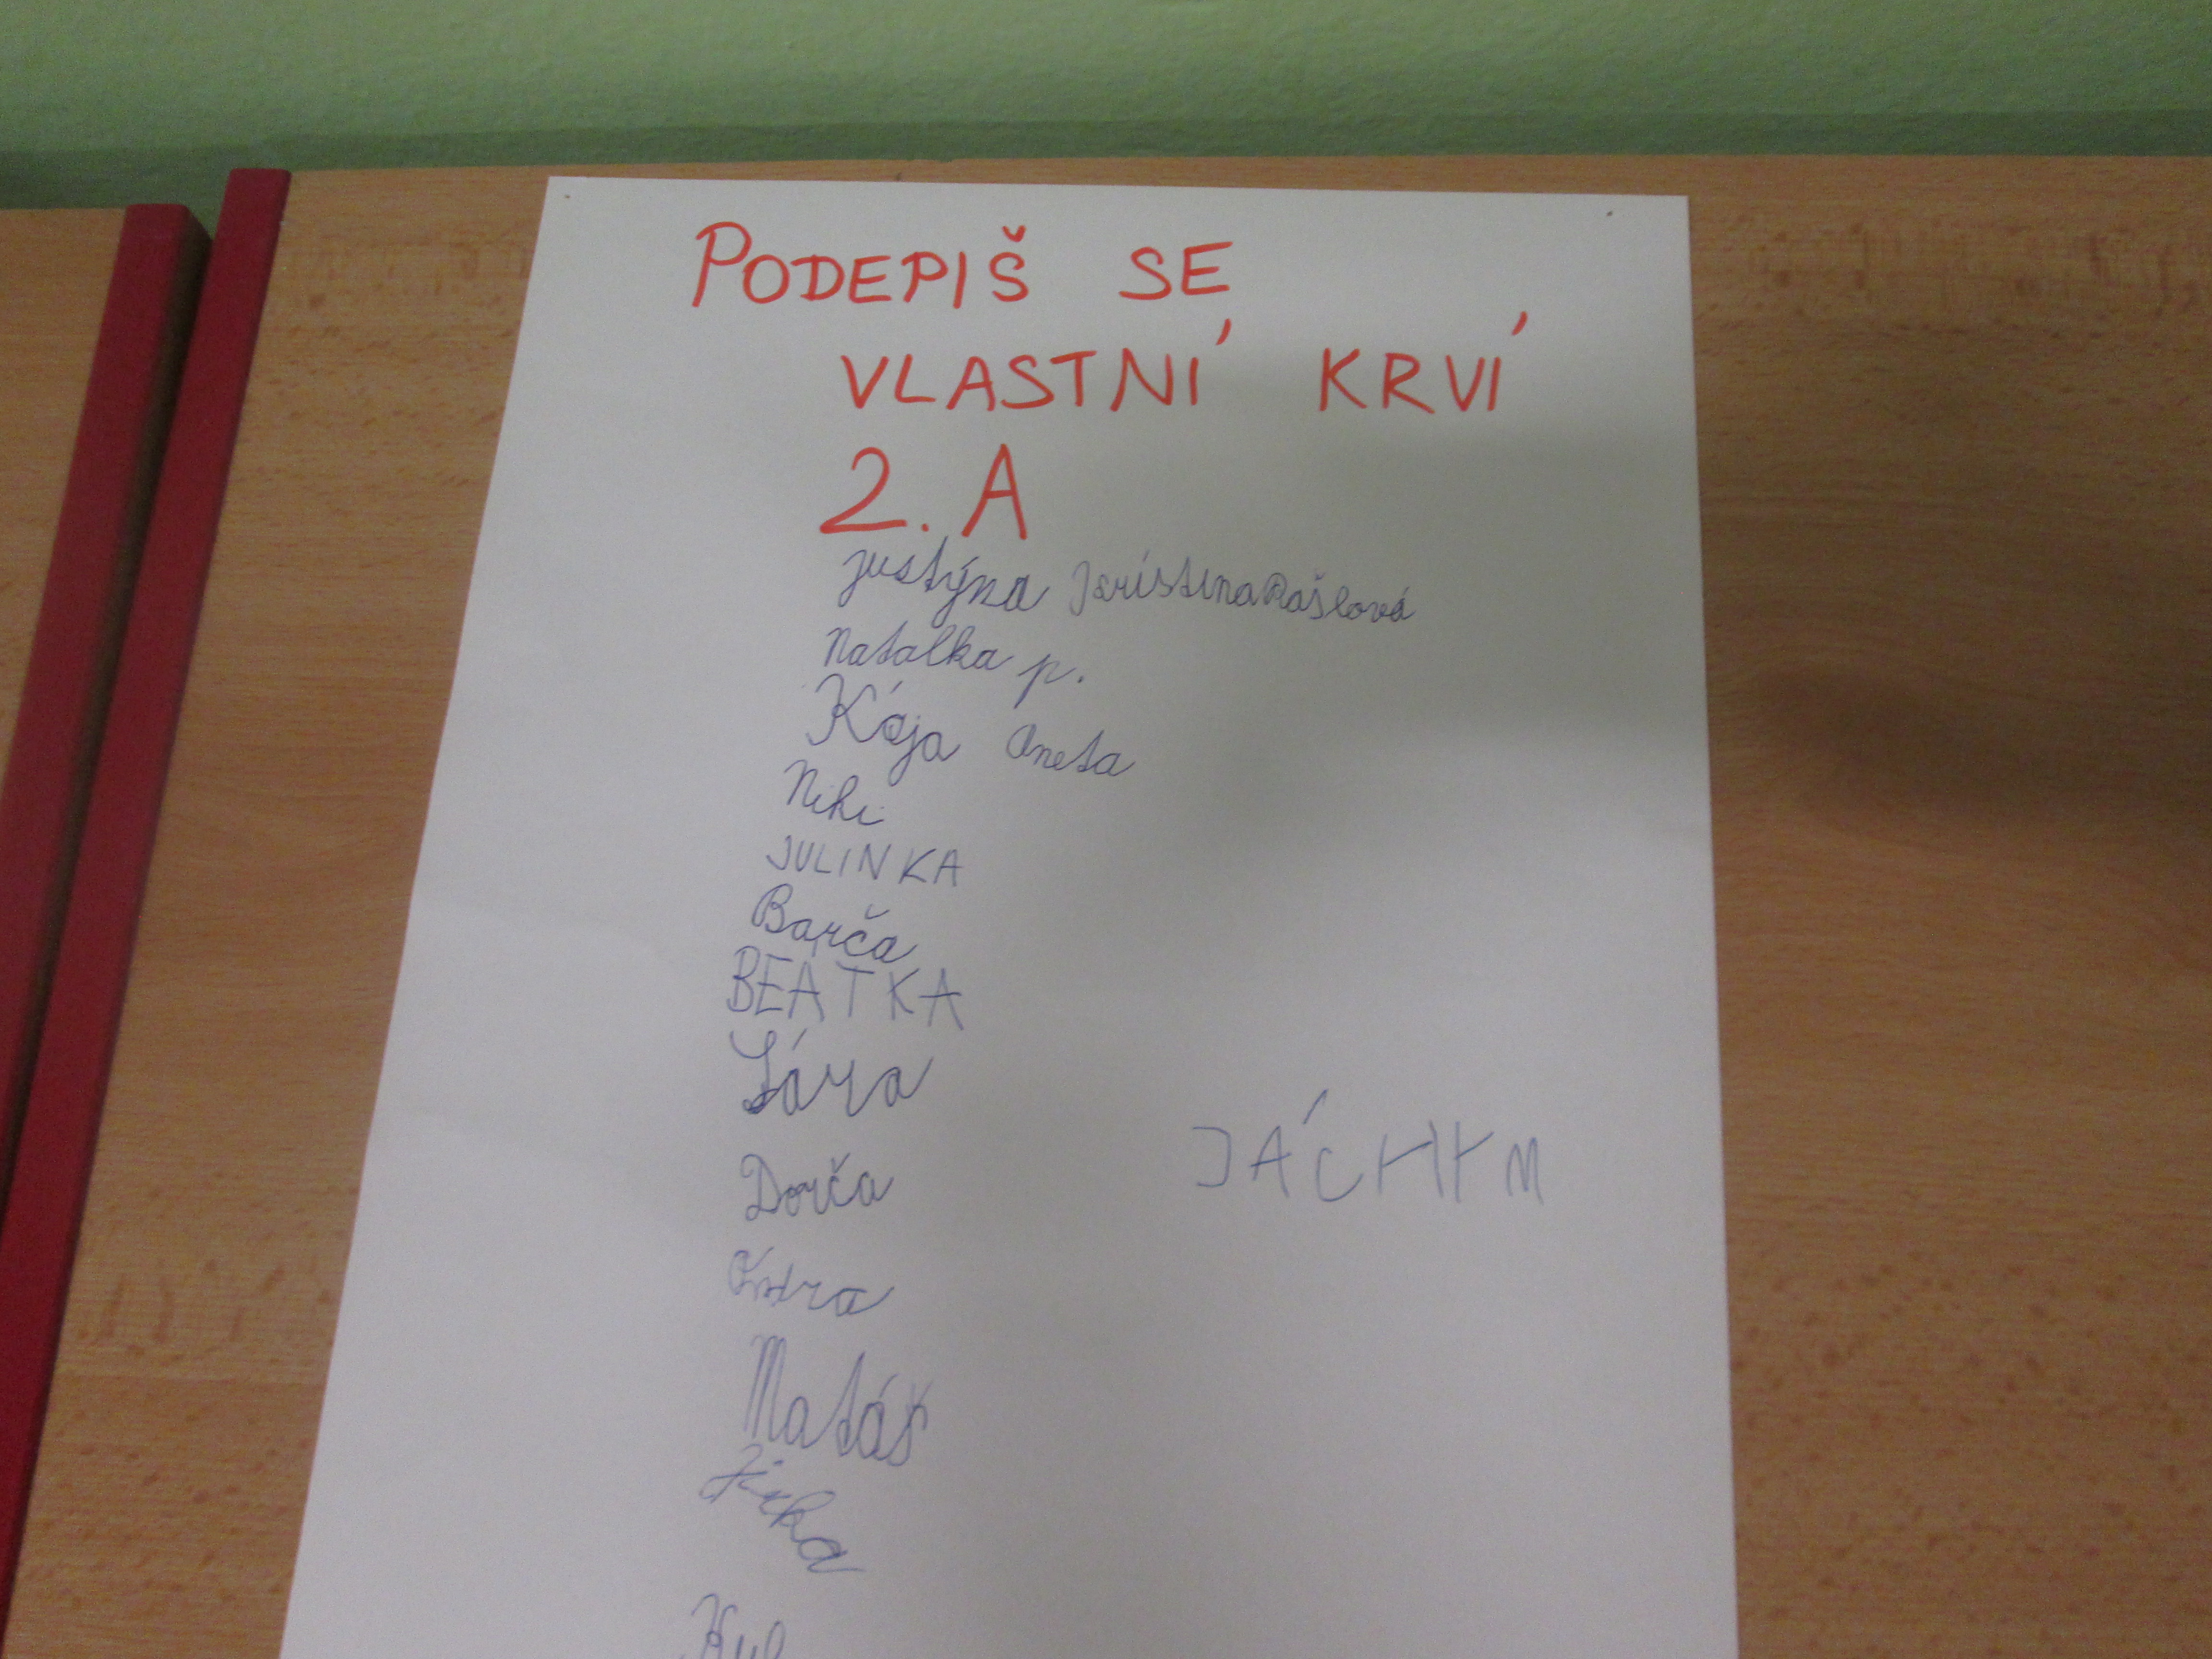 PODEPIŠ SE
VLASTNÍ KRVÍ
2. A
justýna Kristina Rašlová
Natalka p.
Kája Aneta
Niki
JULINKA
Barča
BEATKA
Sára
Dorča
JÁCHYM
Matáš
Jirka